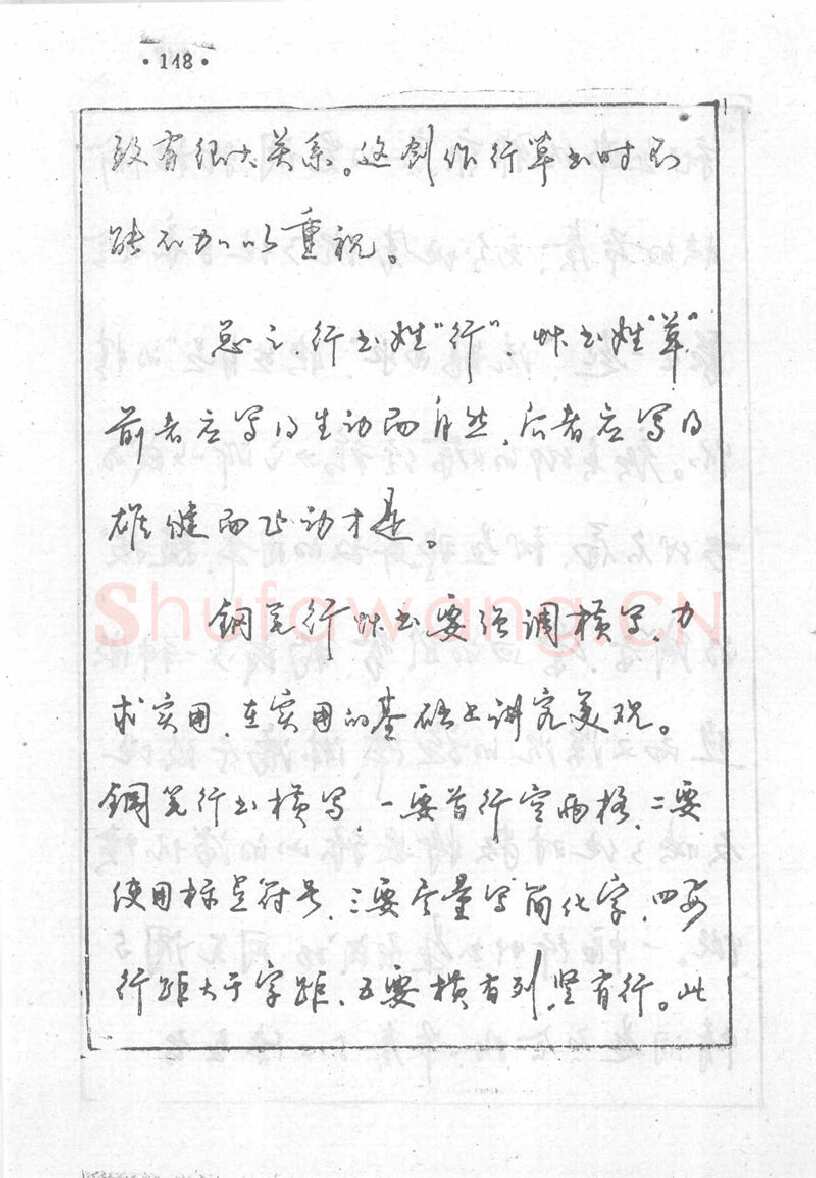 ·118·
致有很大关系。这创作行草书时不
能不加以重视。
总之，行书姓“行”，草书姓“草”
前者应写得生动而自然，后者应写得
雄健而飞动才是。
钢笔行草书要强调横写，力
求实用，在实用的基础上讲究美观。
钢笔行书横写，一要首行空两格，二要
使用标点符号，三要尽量写简化字，四要
行距大于字距，五要横有列，竖有行。此
Shufawang.CN